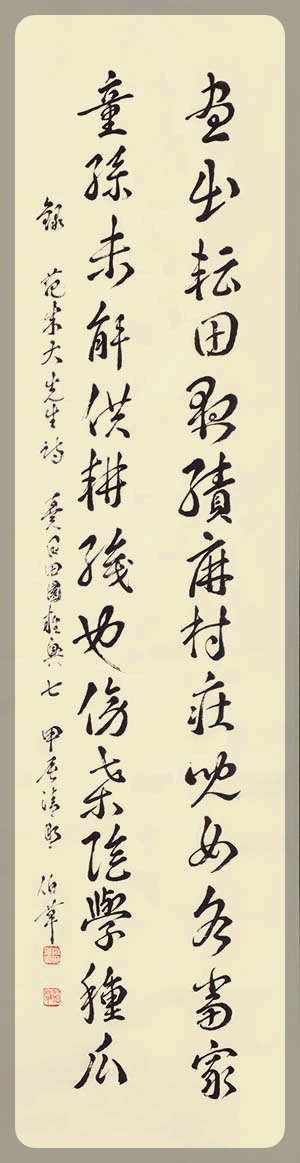 晝出耘田夜績麻村庄兒女各當家
童孫未解供耕織也傍桑陰學種瓜
錄 范成大先生詩 夏日田園雜興七 甲辰清明 伯華